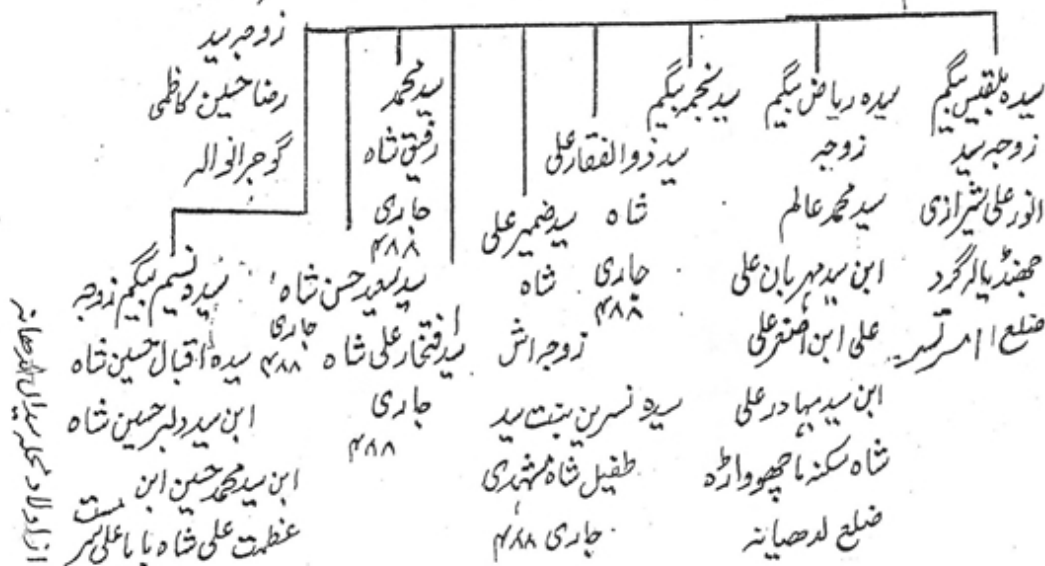 سیدہ بلقیس بیگم
زوجہ سید
انور علی شیرازی
جھنڈیالہ گرد
ضلع امرتسر
سیدہ ریاض بیگم
زوجہ
سید محمد عالم
ابن سید مہربان علی
علی ابن اصغر علی
ابن سید بہادر علی
شاہ سکنہ ماچھوواڑہ
ضلع لدھیانہ
سید نجمہ بیگم
سید ذوالفقار علی
شاہ
جاری
۴۸۸
سید ضمیر علی
شاہ
زوجہ اش
سیدہ نسرین بنت سید
طفیل شاہ مشہدی
جاری ۴۸۸
سید افتخار علی شاہ
جاری
۴۸۸
سید محمد
رفیق شاہ
جاری
۴۸۸
سید سعید حسن شاہ
جاری
۴۸۸
زوجہ سید
رضا حسین کاظمی
گوجرانوالہ
سیدہ نسیم بیگم زوجہ
سیدہ اقبال حسین شاہ
ابن سید دلبر حسین شاہ
ابن سید محمد حسین ابن
عظمت علی شاہ بابا علی
از اولاد محلہ سیداں